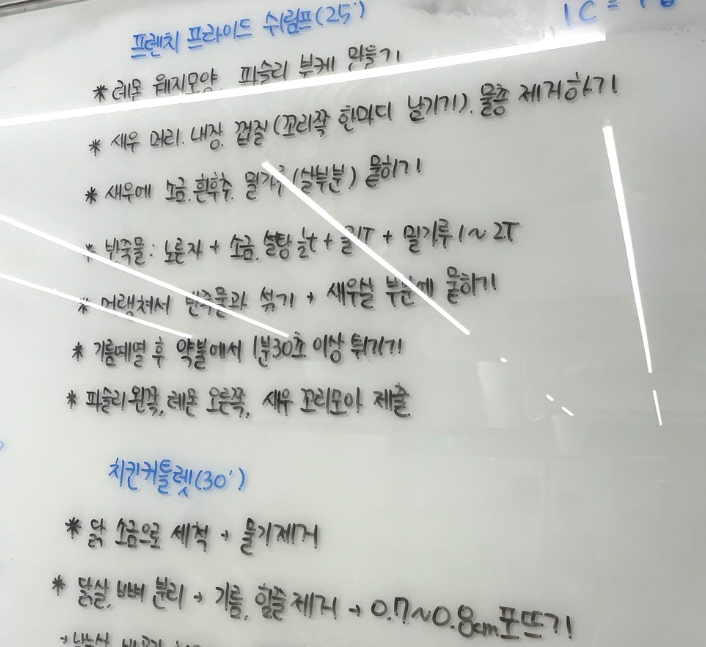 프렌치 프라이드 쉬림프(25')
1C =
* 레몬 웨지모양, 파슬리 부케 만들기
* 새우 머리. 내장. 껍질(꼬리쪽 한마디 남기기). 물총 제거하기!
* 새우에 소금.흰후추. 밀가루(살부분) 묻히기!
* 반죽물: 노른자 + 소금. 설탕 + 물1T + 밀가루 1~2T
* 머랭쳐서 반죽물과 섞기 → 새우살 부분에 묻히기!
* 기름예열 후 약불에서 1분30초 이상 튀기기!
* 파슬리 왼쪽, 레몬 오른쪽, 새우 꼬리모아 제출.
치킨커틀렛(30')
* 닭 소금으로 세척 → 물기제거
* 닭살, 뼈 분리 → 기름, 힘줄 제거 → 0.7~0.8cm 포뜨기!